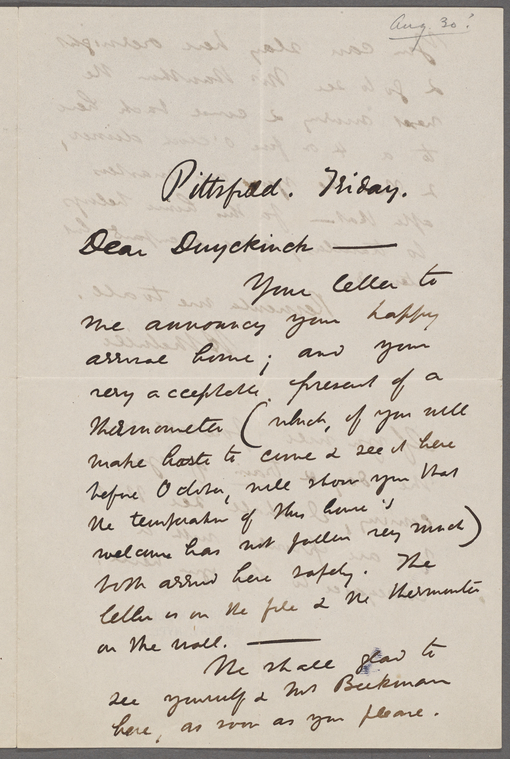 Aug 30?
Pittsfield. Friday.
Dear Duyckinck —
Your letter to
me announcing your happy
arrival home; and your
very acceptable present of a
thermometer (which, if you will
make haste to come & see it here
before October, will show you that
the temperature of this house's
welcome has not fallen very much)
both arrived here safely. The
letter is on the file & the thermometer
on the wall. —
We shall glad to
see yourself & Mr Beekman
here, as soon as you please.